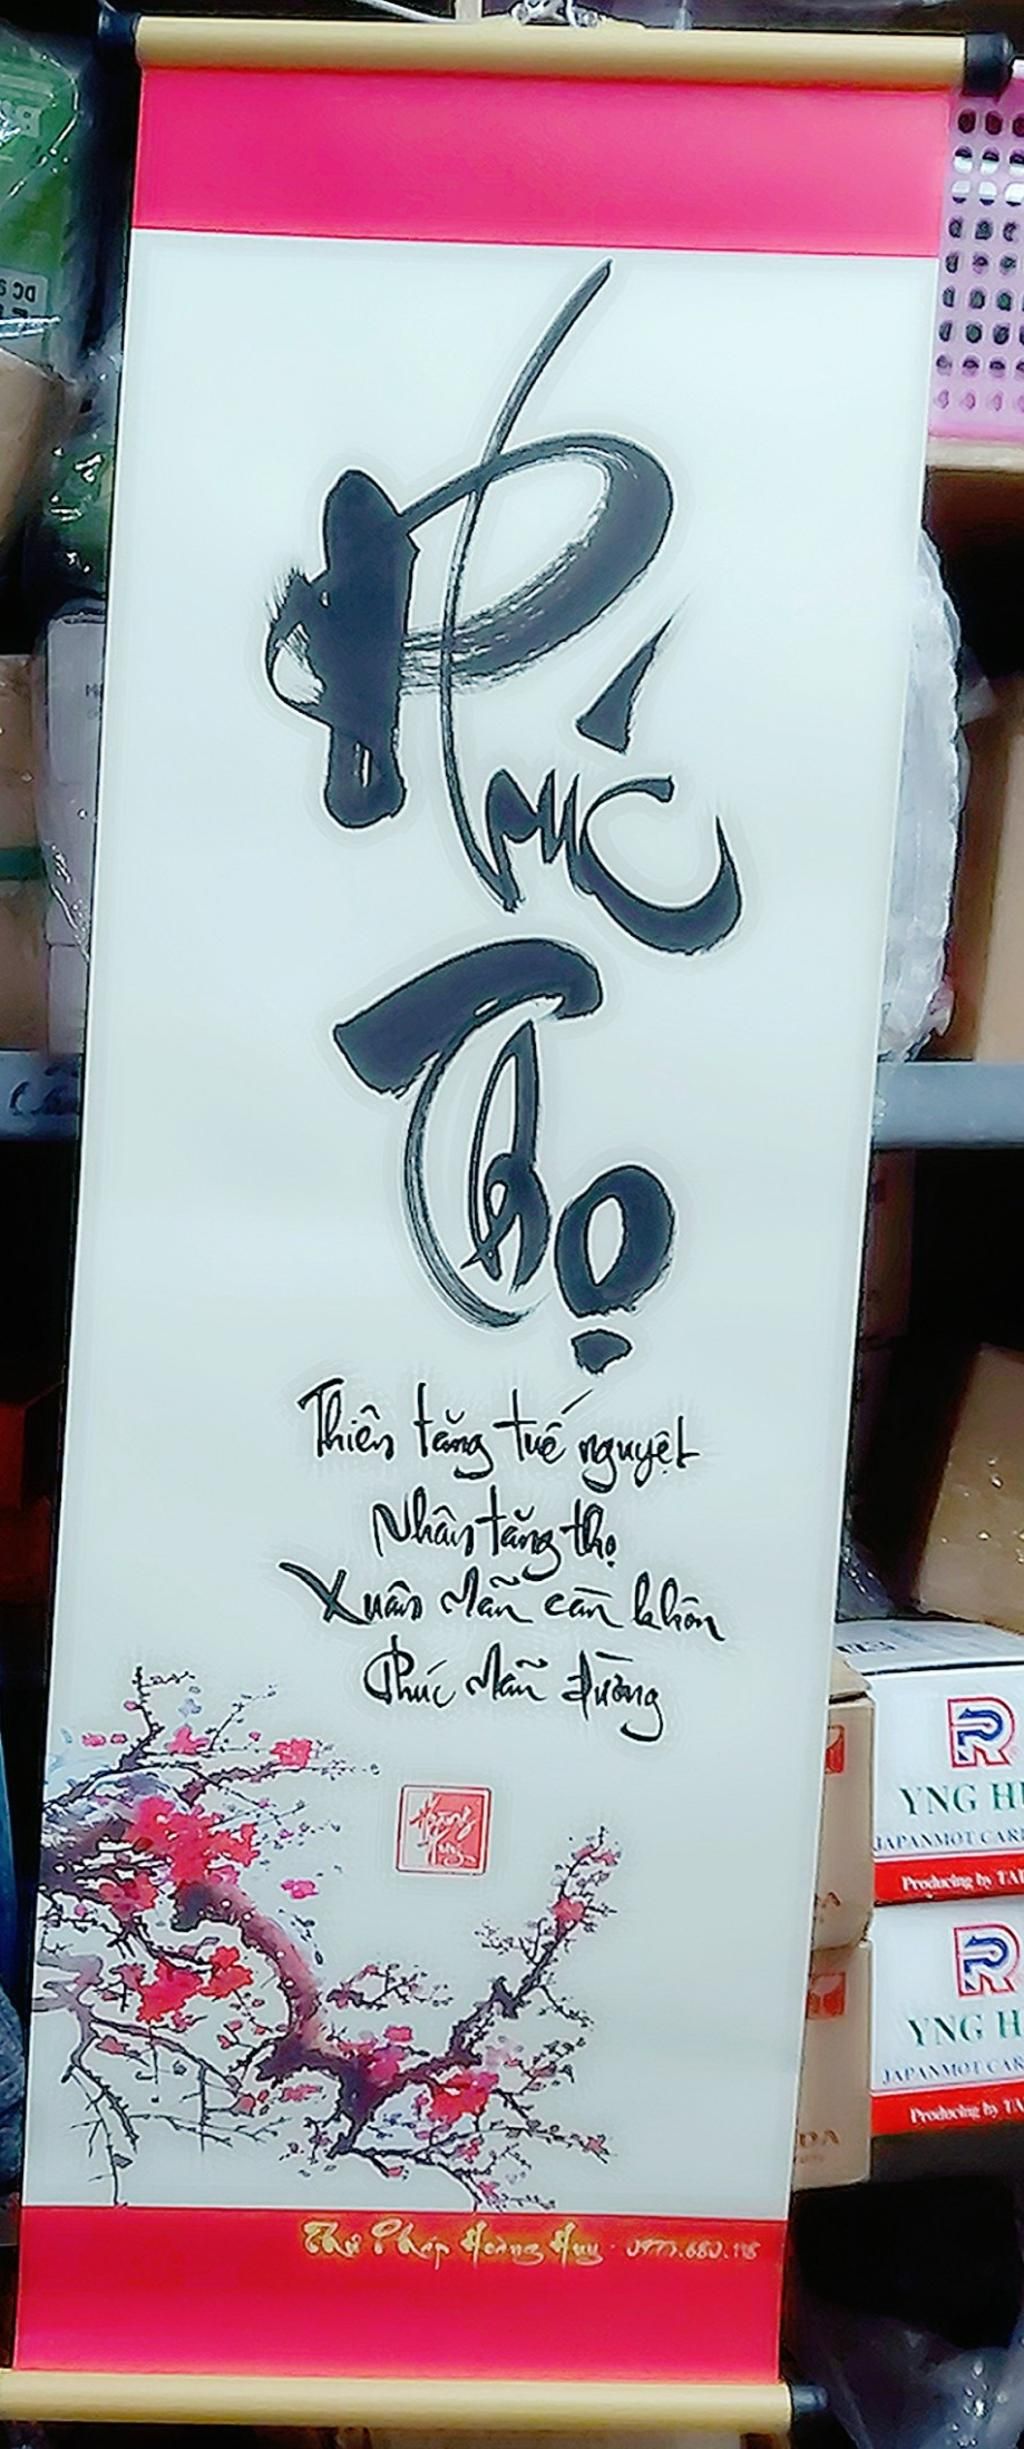 Phúc
Thọ
Thiên tăng tuế nguyệt
Nhân tăng thọ
Xuân Mãn càn khôn
Phúc Mãn đường
Thư Pháp Hoàng Huy
YNG
JAPANMOT
Producing by
YNG
JAPANMOT
Producing by